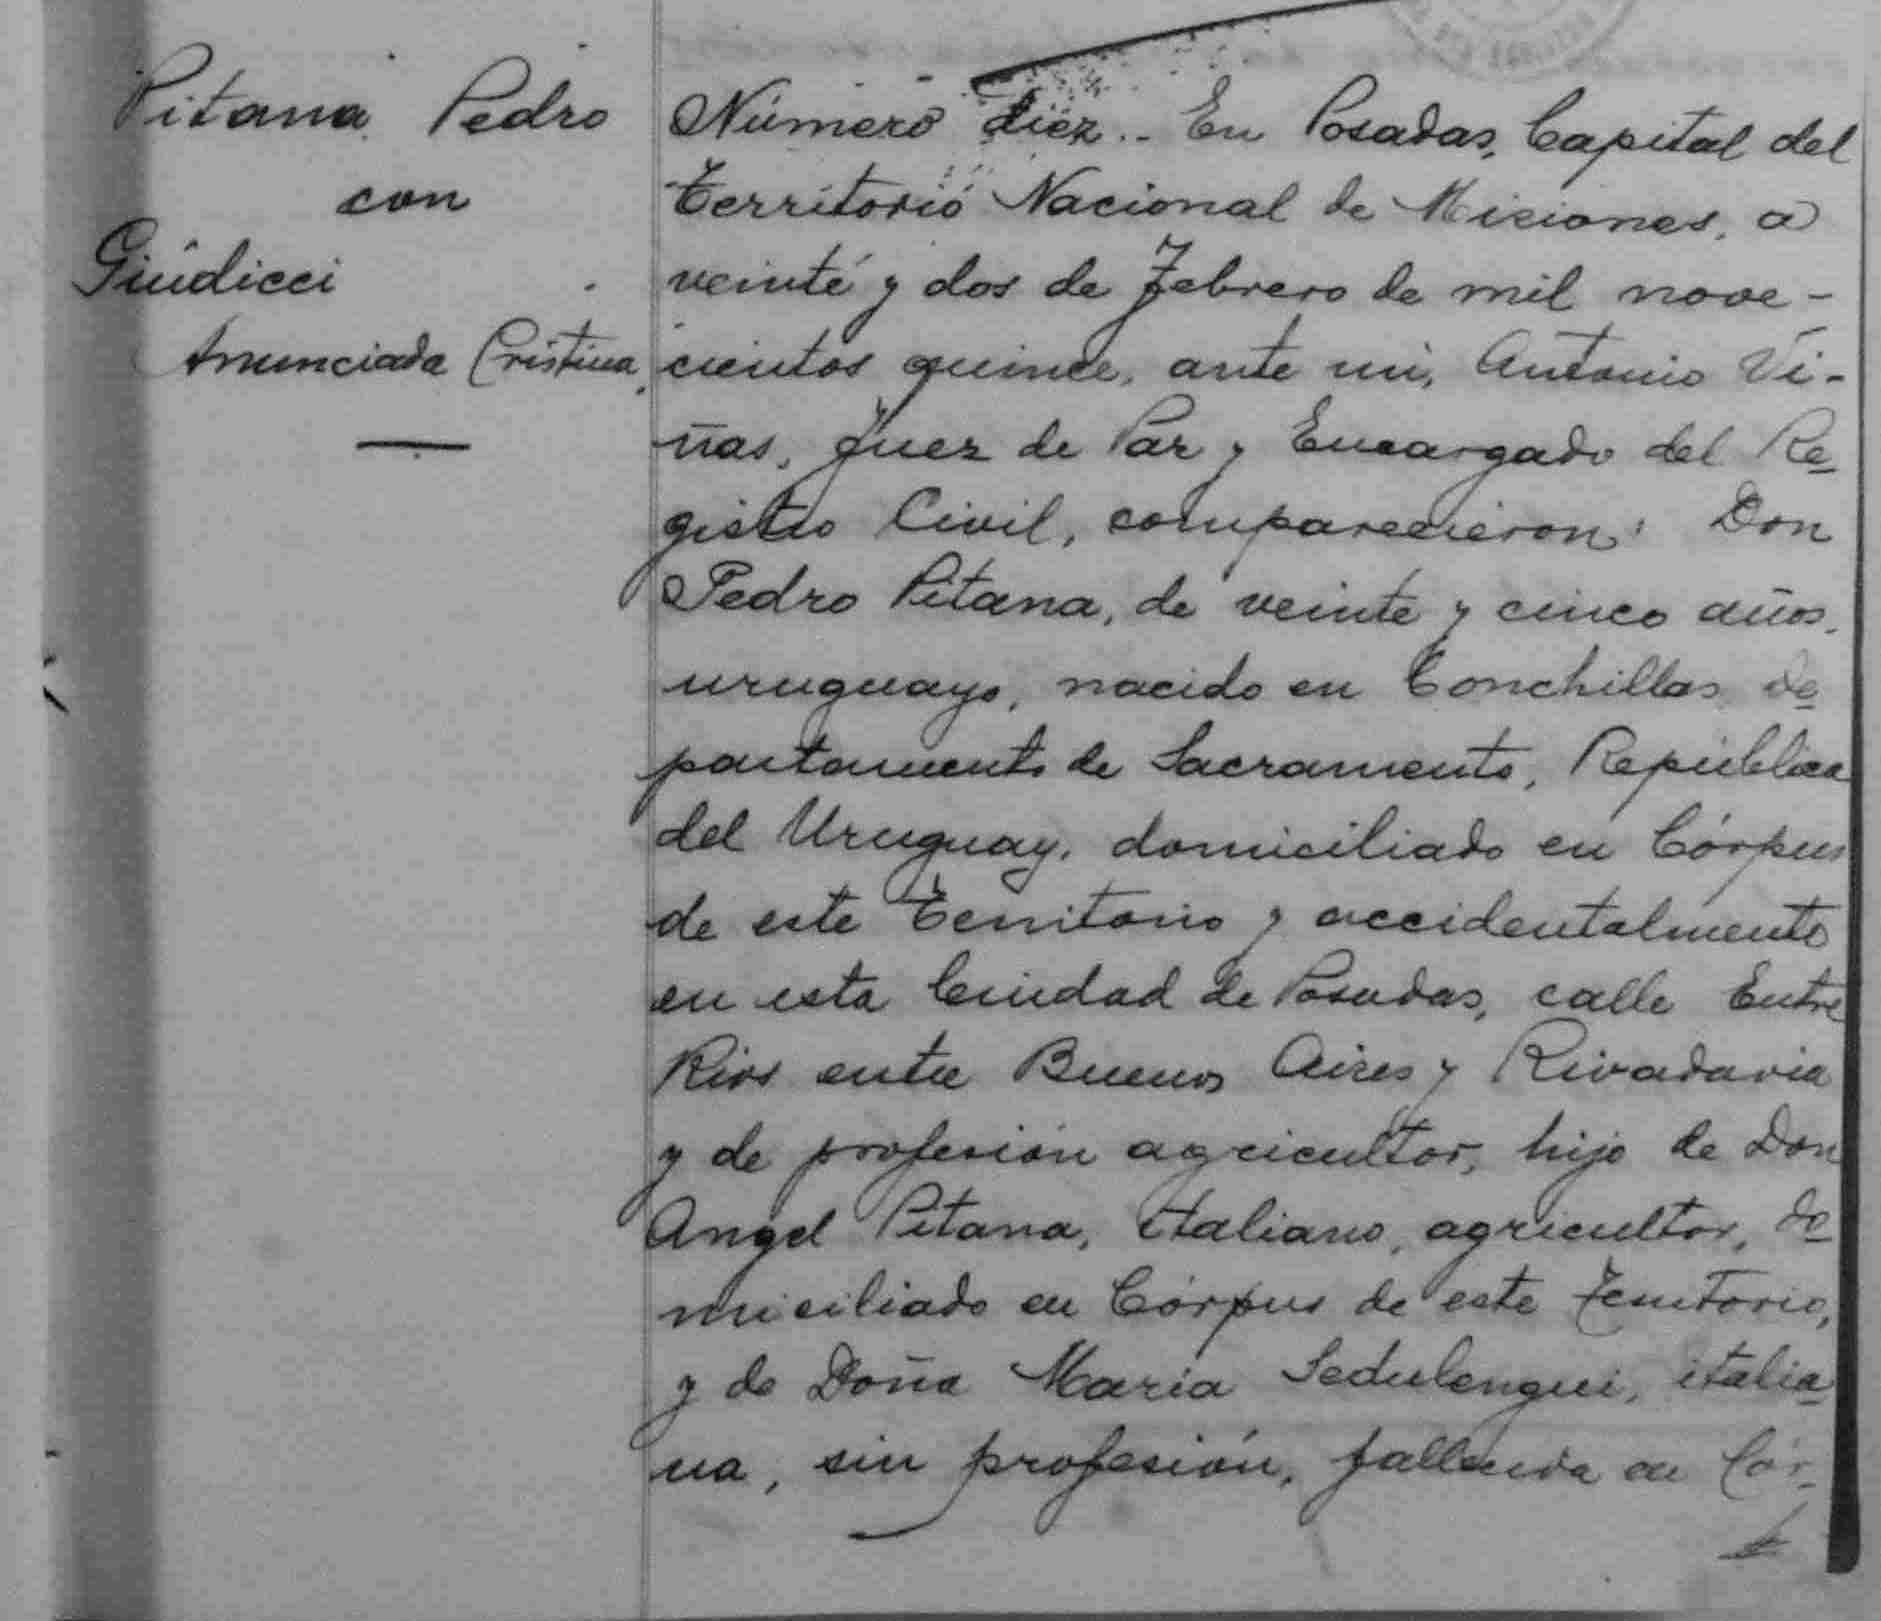 Pitana Pedro
con
Giudicci
Anunciada Cristina
Número diez.. En Posadas, Capital del
Territorio Nacional de Misiones, a
veinte y dos de Febrero de mil nove-
cientos quince, ante mi, Antonio Vi-
ñas, Juez de Paz y Encargado del Re-
gistro Civil, comparecieron: Don
Pedro Pitana, de veinte y cinco años,
uruguayo, nacido en Conchillas de-
partamento de Sacramento, República
del Uruguay, domiciliado en Córpus
de este Territorio y accidentalmente
en esta Ciudad de Posadas, calle Entre
Rios entre Buenos Aires y Rivadavia
y de profesión agricultor, hijo de Don
Angel Pitana, italiano, agricultor, do-
miciliado en Córpus de este Territorio,
y de Doña Maria Sedulengui, italia-
na, sin profesión, fallecida en Cór-